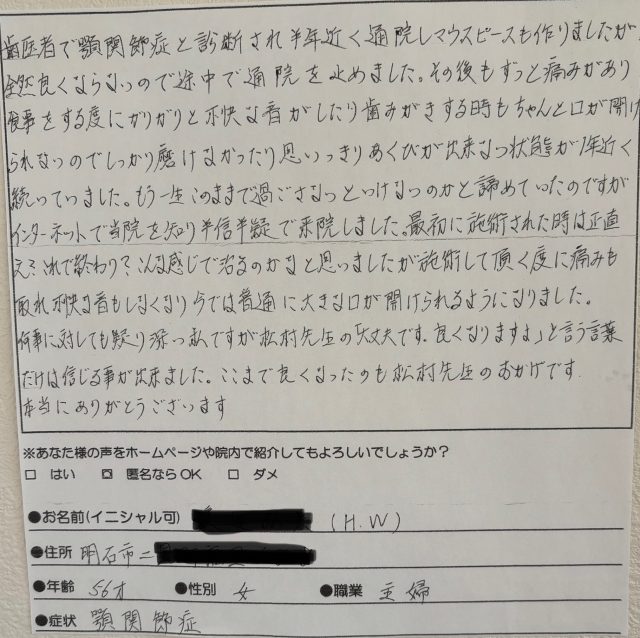 歯医者で顎関節症と診断され半年近く通院しマウスピースも作りましたが
全然良くならないので途中で通院を止めました。その後もずっと痛みがあり
食事をする度にガリガリと不快な音がしたり歯みがきする時もちゃんと口が開け
られないのでしっかり磨けなかったり思いっきりあくびが出来ない状態が1年近く
続いていました。もう一生このままで過ごさないといけないのかと諦めていたのですが
インターネットで当院を知り半信半疑で来院しました。最初に施術された時は正直
え?これで終わり?こんな感じで治るのかなと思いましたが施術して頂く度に痛みも
取れ不快な音もしなくなり今では普通に大きな口が開けられるようになりました。
何事に対しても疑り深い私ですが松村先生の「大丈夫です。良くなりますよ」と言う言葉
だけは信じる事が出来ました。ここまで良くなったのも松村先生のおかげです。
本当にありがとうございます
※あなた様の声をホームページや院内で紹介してもよろしいでしょうか?
□ はい ☒ 匿名ならOK □ ダメ
●お名前(イニシャル可) (H.W)
●住所 明石市二
●年齢 56才 ●性別 女 ●職業 主婦
●症状 顎関節症